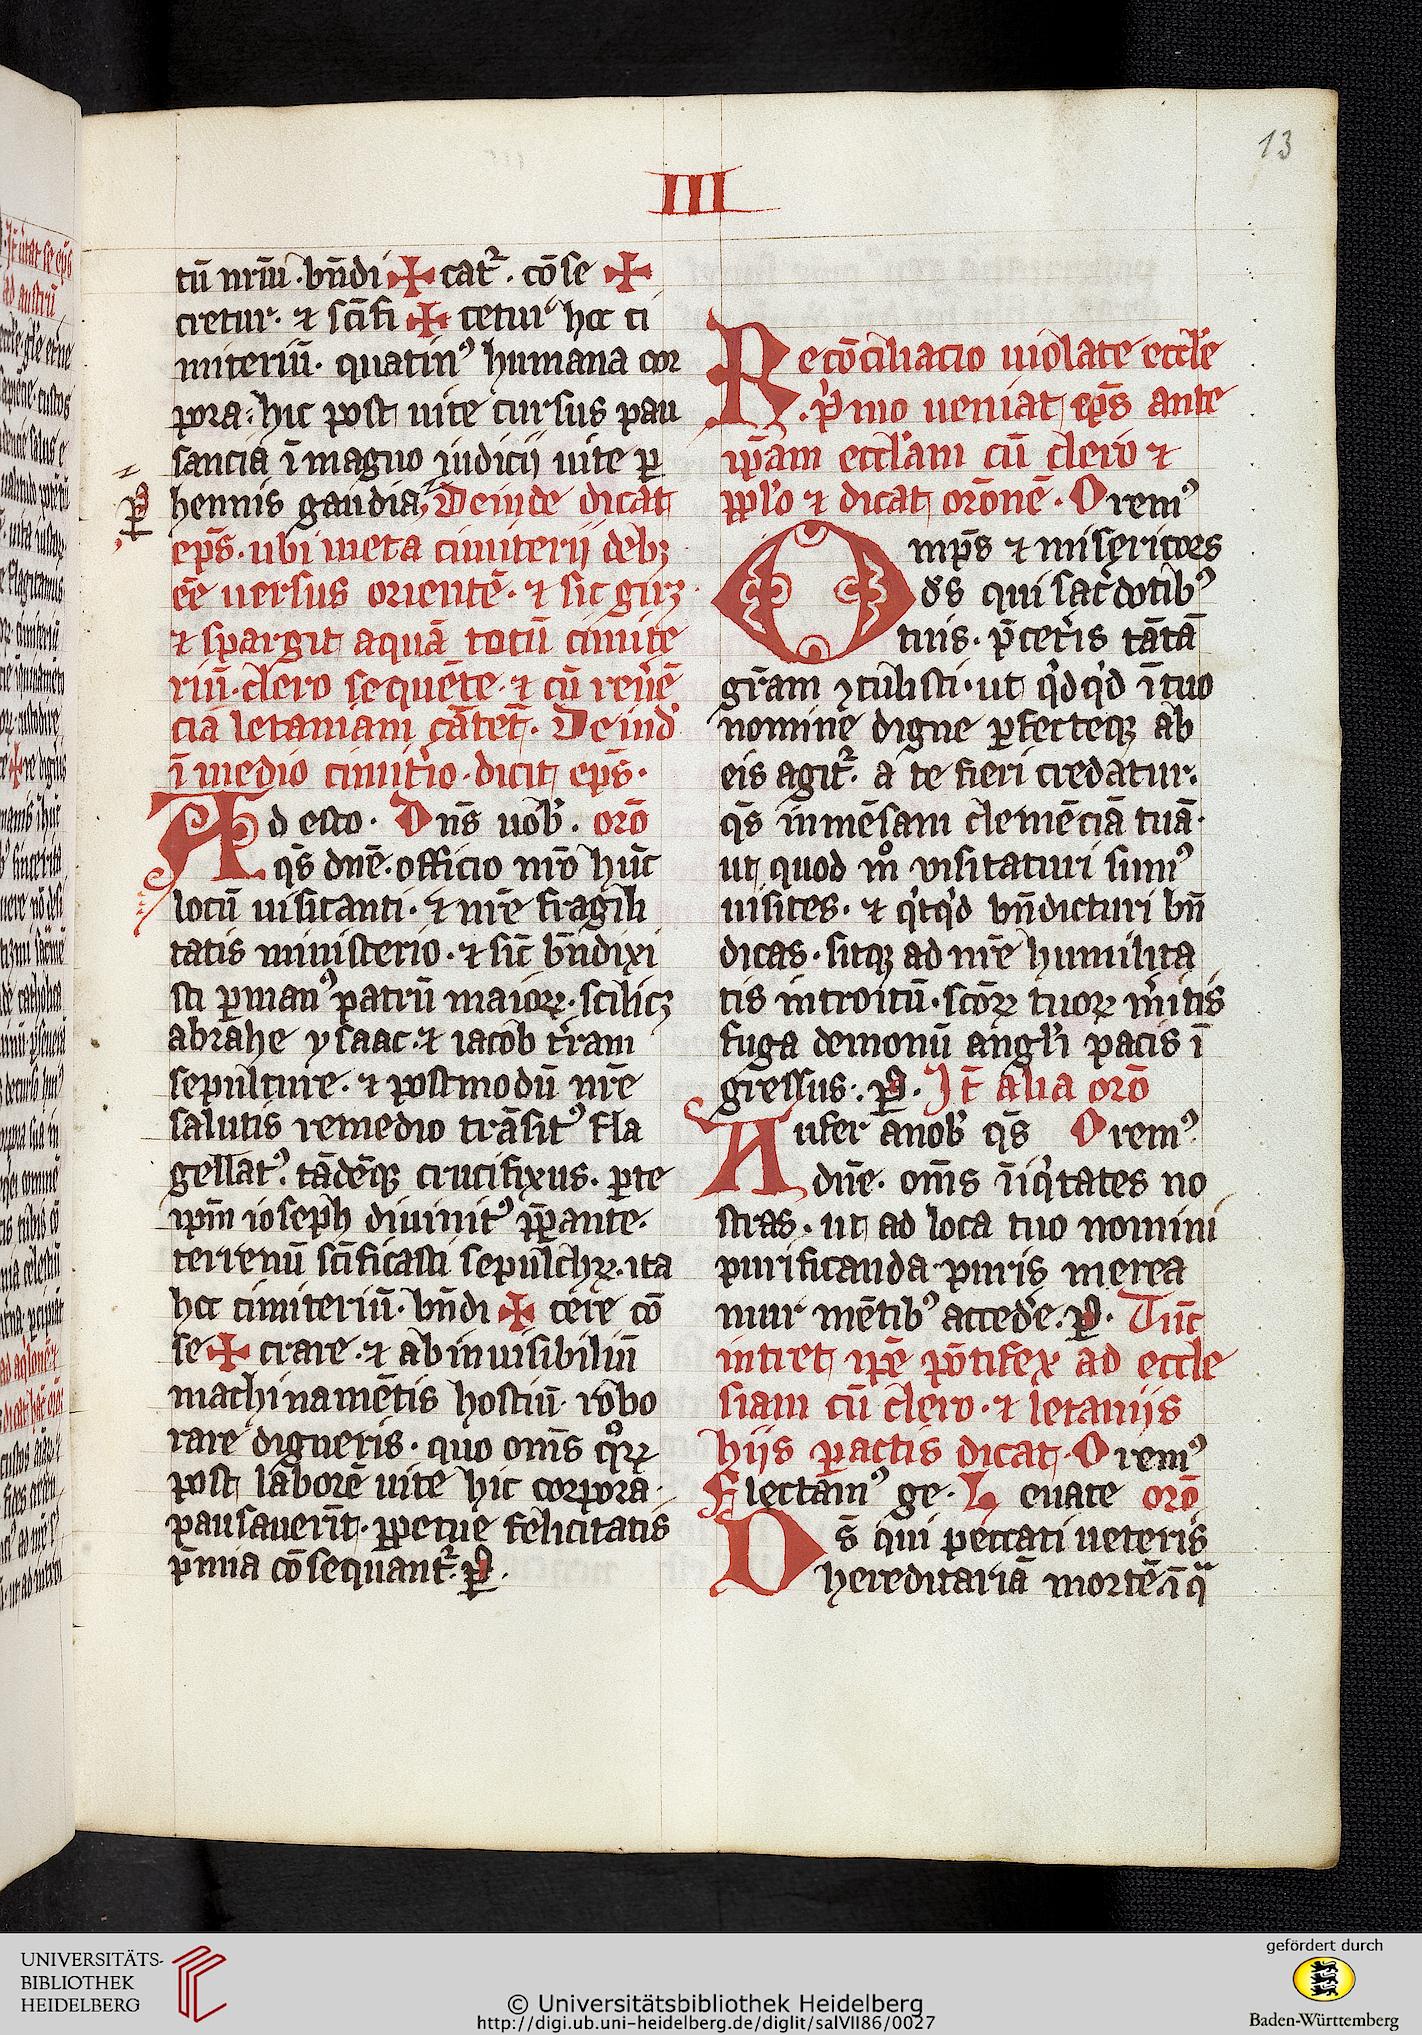 13
III
tū nrm̄. bn̄di ✠ cat᷑. cōse ✠
cretur. ⁊ scīfi ✠ cetur hoc ci
miteriū. quatinꝰ humana cor
pora. hic post uite cursus pau
sancia ī magno iudicij uite ꝑ
hennis gaudia. Deinde dicat
ep̄s. ubi meta cimiterij debꝫ
ēe uersus orientē. ⁊ sic
⁊ spargit aquā totū cimite
riū. clero sequēte. ⁊ cū reuē
cia letaniam cātet᷑. Deind
ī medio cimit̾io. dicit ep̄s.
Ad esto. Dn̄s uob̾. orō
qs̄ dn̄e. officio nr̄o hūc
locū uisitanti. ⁊ nr̄e fragili
tatis ministerio. ⁊ sic̄ bn̄dixi
sti ꝑ manꝰ patrū maioꝝ. scilicꝫ
abrahe ysaac. ⁊ iacob t̾ram
sepulture. ⁊ postmodū nr̄e
salutis remedio trāsitꝰ fla
gellatꝰ. tādēqꝫ crucifixus. ꝑ te
ipm̄ ioseph diuinitꝰ p̄ꝑante.
terrenū scīficasti sepulchꝝ. ita
hoc cimiteriū. bn̄di ✠ cere cō
se ✠ crare. ⁊ ab inuisibiliū
machinamētis hostiū. robo
rare digneris. quo om̄s qͦꝝ
post laborē uite hic corpora.
pausauerīt. ꝑpetue felicitatis
p̄mia cōsequant᷑. ꝑ.
Recōciliacio uiolate eccl̾e
.p̾mo ueniat ep̄s ante
ip̄am eccl̾am cū clero ⁊
ppl̾o ⁊ dicat orōnē. Oremꝰ
Omp̄s ⁊ misericors
ds̄ qui sac̾dotibꝰ
tuis. p̄cet̾is tātā
gr̄am ꝯtulisti. ut qͥdqͥd ī tuo
nomine digne ꝑfecteqꝫ ab
eis agit᷑. a te fieri credatur.
qs̄ inmēsam clemēciā tuā.
ut quod mͦ uisitaturi sumꝰ
uisites. ⁊ qͥcqͥd bn̄dicturi bn̄
dicas. sitqꝫ ad nr̄e humilita
tis introitū. scōꝝ tuoꝝ m̾itis
fuga demonū angl̾i pacis ī
gressus. ꝑ. It̄ alia orō
Aufer a nob̾ qs̄ Oremꝰ.
dn̄e. om̄s īiqͥtates no
stras. ut ad loca tuo nomini
purificanda puris merea
mur mētibꝰ acced̾e. ꝑ. Tūc
intret ip̄e pōtifex ad eccle
siam cū clero. ⁊ letaniis
hijs ꝑactis dicat. Oremꝰ
Flectamꝰ ge. Leuate orō
Ds̄ qui peccati ueteris
hereditariā mortē. ī qᷓ
UNIVERSITÄTS-
BIBLIOTHEK
HEIDELBERG
© Universitätsbibliothek Heidelberg
http://digi.ub.uni-heidelberg.de/diglit/salVII86/0027
gefördert durch
Baden-Württemberg